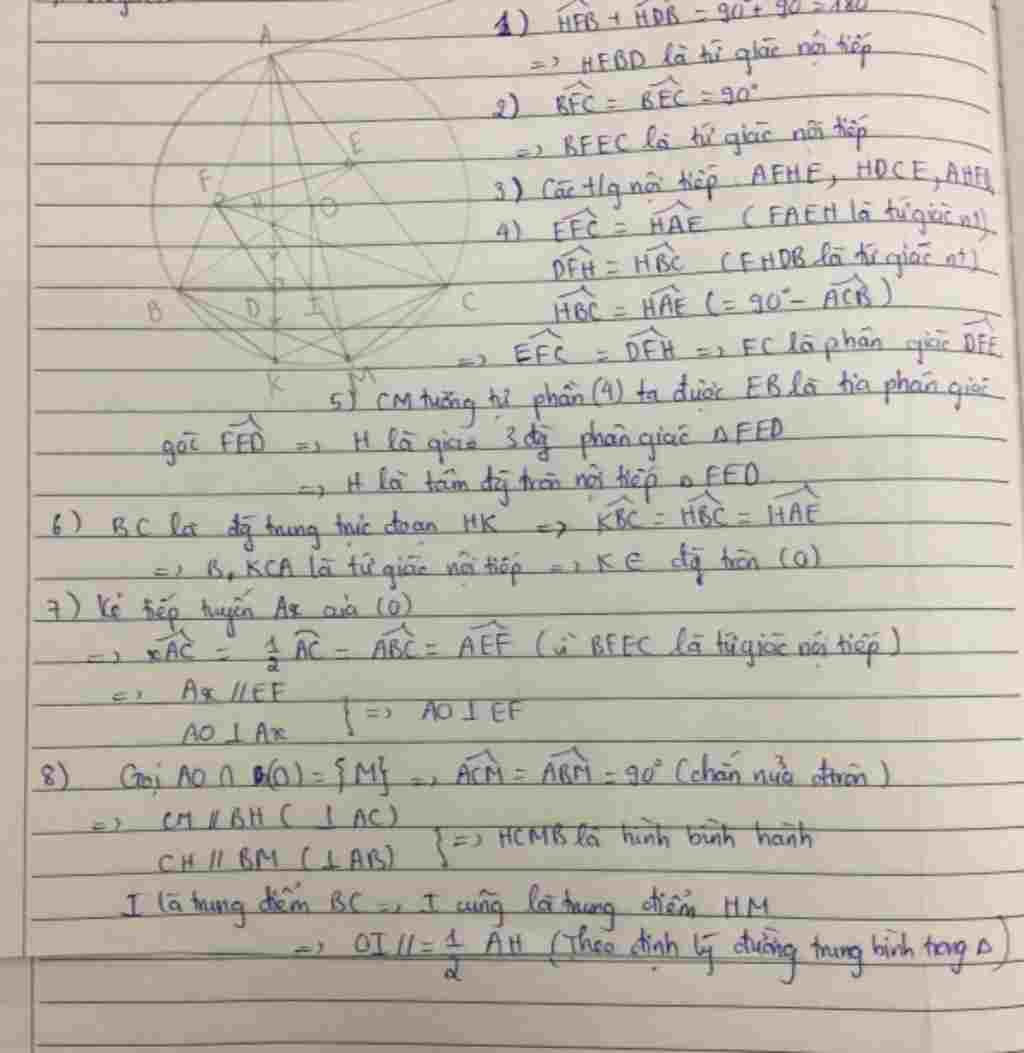 A
E
F
H
O
B
D
I
C
K
M
1) HFB + HDB = 90 + 90 = 180
=> HFBD là tứ giác nội tiếp
2) BFC = BEC = 90°
=> BFEC là tứ giác nội tiếp
3) Các t/g nội tiếp AFHE, HDCE,
4) EFC = HAE (FAEH là tứ giác nt)
DFH = HBC (FHDB là tứ giác nt)
HBC = HAE (= 90° - ACB)
=> EFC = DFH => FC là phân giác DFE
5) CM tương tự phần (4) ta được EB là tia phân giác
góc FED => H là giao 3 đg phân giác △ FED
=> H là tâm đg tròn nội tiếp △ FED.
6) BC là đg trung trực đoạn HK => KBC = HBC = HAE
=> B, KCA là tứ giác nội tiếp => K ∈ đg tròn (O)
7) Kẻ tiếp tuyến Ax của (O)
=> xAC = 1/2 AC = ABC = AEF (vì BFEC là tứ giác nội tiếp)
=> Ax // EF
AO ⊥ Ax } => AO ⊥ EF
8) Gọi AO ∩ (O) = {M} => ACM = ABM = 90° (chắn nửa đtròn)
=> CM // BH (⊥ AC)
CH // BM (⊥ AB) } => HCMB là hình bình hành
I là trung điểm BC => I cũng là trung điểm HM
=> OI // = 1/2 AH (Theo định lý đường trung bình trong △)